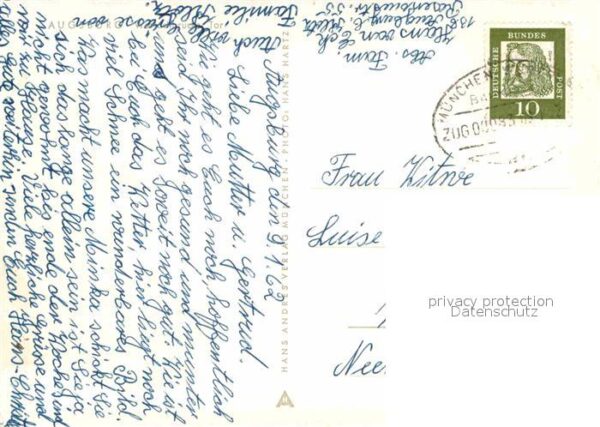 Augsburg den 9.1.62
Liebe Mutter u. Gertrud.
Wie geht es Euch noch, hoffentlich
seid Ihr noch gesund und munter
uns geht es soweit noch gut. Wie ist
bei Euch das Wetter, hier liegt noch
viel Schnee ein wunderbares Bild.
Was macht unsere Minka schickt Sie
sich das lange allein sein ist Sie ja
nicht gewohnt bis ende der Woche sind
wir zu Hause. Viele herzliche Grüsse und
alles gute verbleiben unsern Euch Heins-Christa
Auch viele Grüsse von
Familie Klotz.
AUGSBURG
HANS ANDRES VERLAG MÜNCHEN - PHOTO: HANS HARTZ
Abs. Fam
Hans von Eck
DEUTSCHE BUNDESPOST
10
MÜNCHEN
BA
ZUG 00083
Frau Witwe
Luise
Nee
privacy protection
Datenschutz